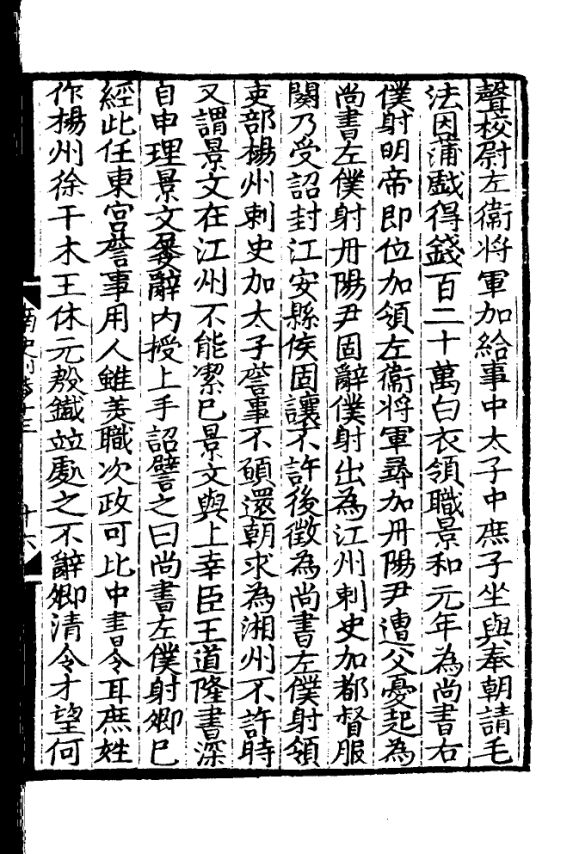 聲校尉左衞將軍加給事中太子中庶子坐與奉朝請毛
法因蒲戲得錢百二十萬白衣領職景和元年為尚書右
僕射明帝即位加領左衞將軍尋加丹陽尹遭父憂起為
尚書左僕射丹陽尹固辭僕射出為江州刺史加都督服
闋乃受詔封江安縣侯固讓不許後徵為尚書左僕射領
吏部楊州刺史加太子詹事不願還朝求為湘州不許時
又謂景文在江州不能潔己景文與上幸臣王道隆書深
自申理景文屢辭內授上手詔譬之曰尚書左僕射卿已
經此任東宮詹事用人雖美職次政可比中書令耳庶姓
作楊州徐干木王休元殷鐵並處之不辭卿清令才望何
南史列傳十三
十六